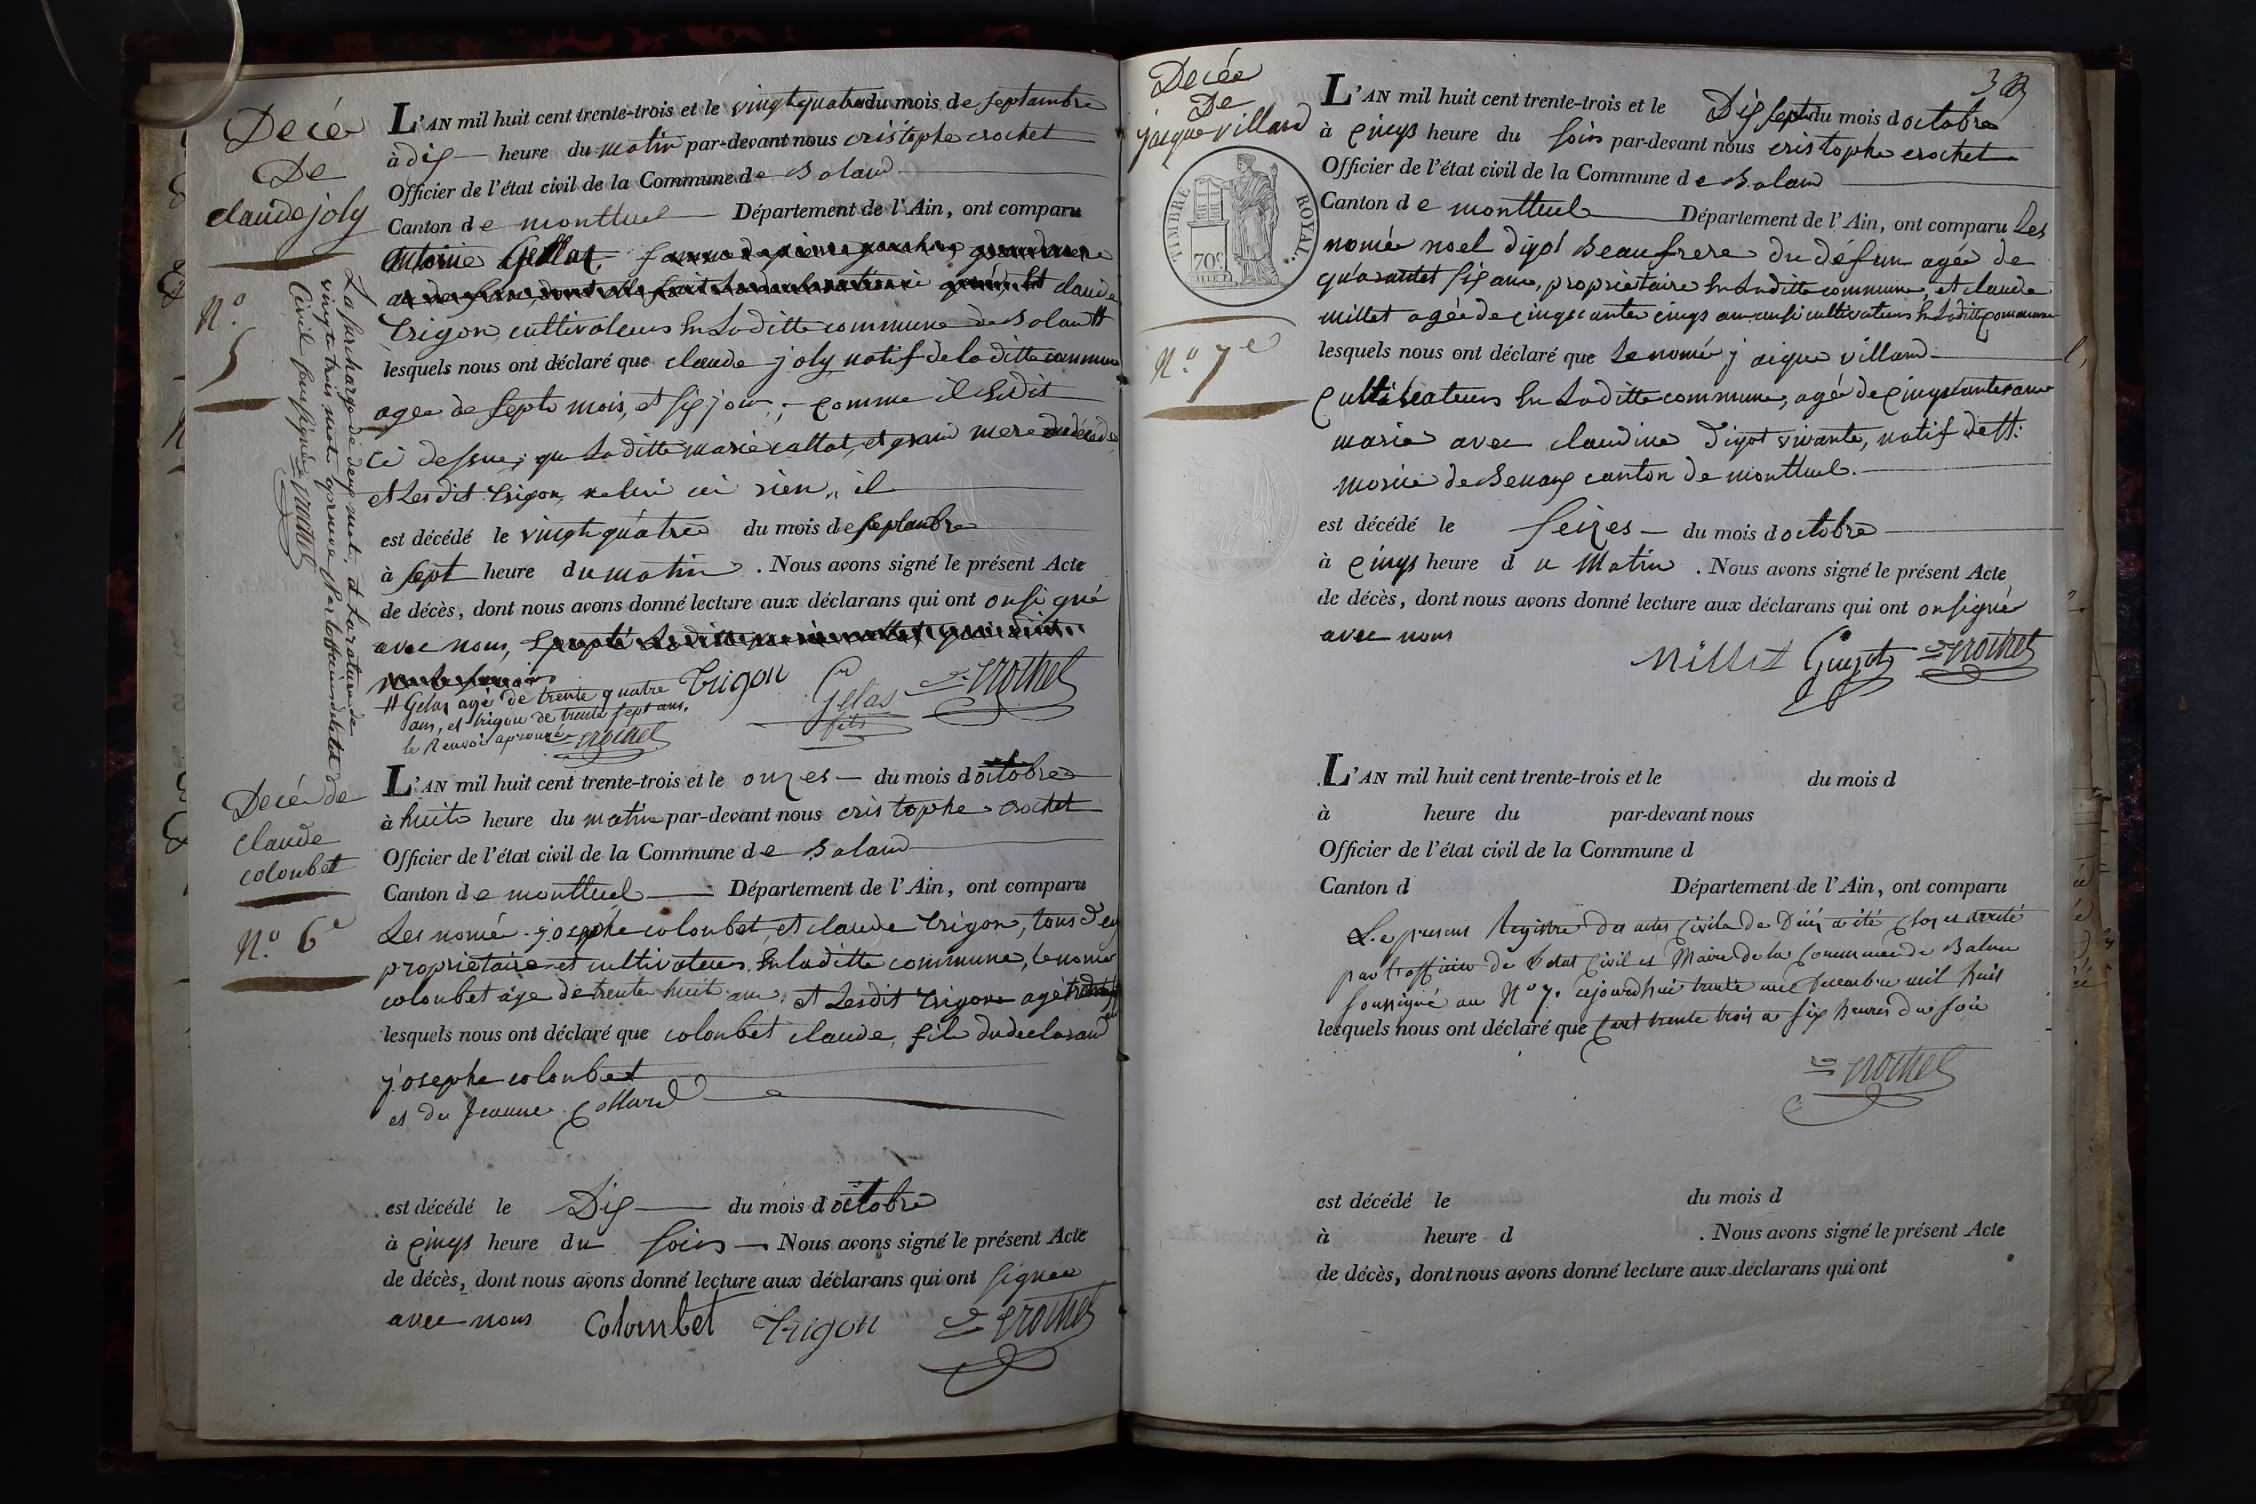 Decé
De
claude joly
N.o
5
L'AN mil huit cent trente-trois et le vingt quatre du mois de septambre
à dix heure du matin par-devant nous cristophe crochet
Officier de l'état civil de la Commune de Baland
Canton de montluel Département de l'Ain, ont comparu
antoine Gellas
et claude
trigon cultivateurs en Laditte commune de Baland #
lesquels nous ont déclaré que claude joly natif de laditte commune
agee de septe mois, et six jour, comme il Est dit
ci dessue, que Laditte marie cattat, et grand mere
et Lesdit trigon, ne lui ai rien, il
est décédé le vingt quatre du mois de septanbre
à sept heure du matin . Nous avons signé le présent Acte
de décès, dont nous avons donné lecture aux déclarans qui ont onsigné
avec nous,
# Gelas agé de trente quatre
ans, et trigon de trente sept ans,
le Renvoi aprouvé crochet
trigon Gelas fils crochet
La surcharge de deux mot, et la rature de
vingt trois mot aprouve par l'officier de l'état
Civil soussigné crochet
Decé de
claude
colonbet
N.o 6e
L'AN mil huit cent trente-trois et le onzes du mois d octobre
à huite heure du matin par-devant nous cristophe crochet
Officier de l'état civil de la Commune de Baland
Canton de montluel Département de l'Ain, ont comparu
Les nomé josephe colonbet, et claude trigon, tous d'eux
proprietaire et cultivateurs En laditte commune, le nomé
colonbet age de trente huit ans, et Lesdit trigon agé
lesquels nous ont déclaré que colonbet claude, fils du declarand
josephe colonbet
et de Jeanne Collard
est décédé le Dix du mois d octobre
à cinqs heure du soirs Nous avons signé le présent Acte
de décès, dont nous avons donné lecture aux déclarans qui ont signée
avec nous Colombet trigon crochet
3
Decée
De
jaique villand
TIMBRE ROYAL.
70c
N.o 7e
L'AN mil huit cent trente-trois et le Dix sept du mois d octobre
à cinqs heure du soir par-devant nous cristophe crochet
Officier de l'état civil de la Commune de Baland
Canton de montluel Département de l'Ain, ont comparu Les
nomée noel digot Beaufrere du défun agée de
quarantet six ans, proprietaire En Laditte commune, et claude
millet agée de cinqscante cinqs ans ausi cultivateurs En Laditte commune
lesquels nous ont déclaré que Le nomé jaique villand
cultivateurs En Laditte commune, agé de cinqscante ans
marie avec claudine digot vivante, natif de st:
morice de Benax canton de montluel.
est décédé le seizes du mois d octobre
à cinqs heure du Matin . Nous avons signé le présent Acte
de décès, dont nous avons donné lecture aux déclarans qui ont onsignée
avec nous
Millet Guyot crochet
L'AN mil huit cent trente-trois et le du mois d
à heure du par-devant nous
Officier de l'état civil de la Commune d
Canton d Département de l'Ain, ont comparu
Le present Registre des actes civils de Décès a été clos et arreté
par l'officier de l'état Civil et Maire de la Commune de Balan
soussigné au N.o 7. cejourd'hui trente une Décembre mil huit
lesquels nous ont déclaré que cent trente trois a six heures du soir
crochet
est décédé le du mois d
à heure d . Nous avons signé le présent Acte
de décès, dont nous avons donné lecture aux déclarans qui ont